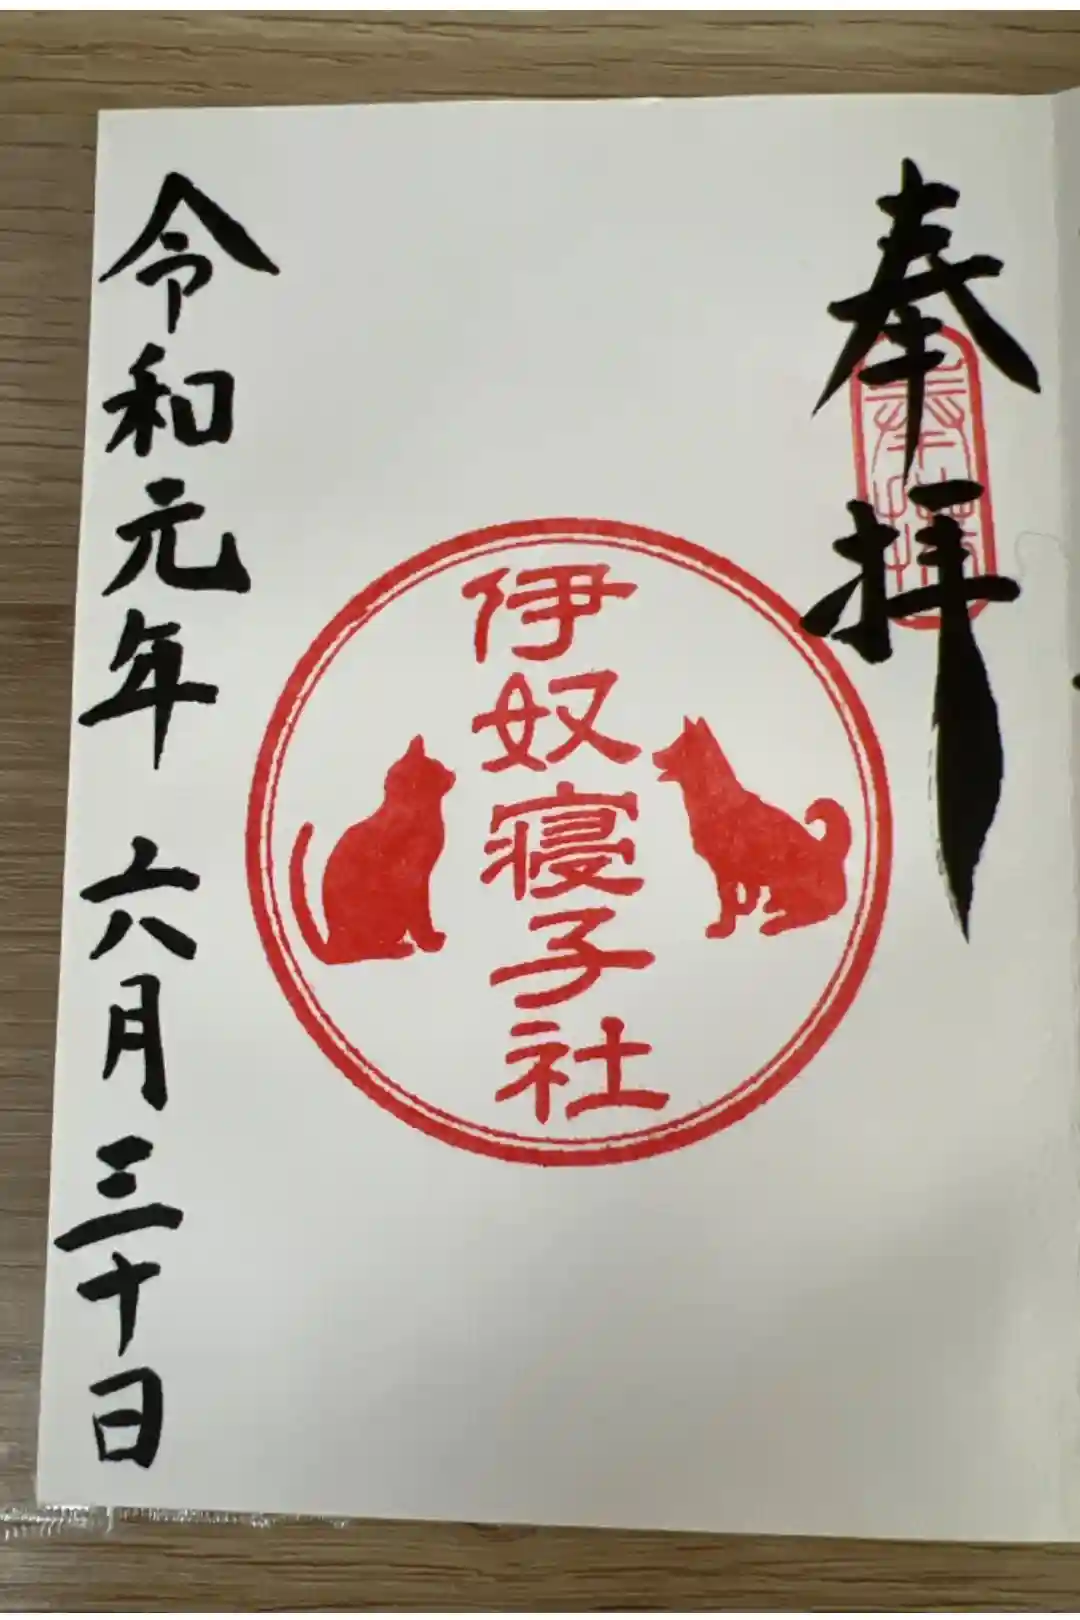 奉拝
奉拝
伊奴寝子社
令和元年 六月三十日